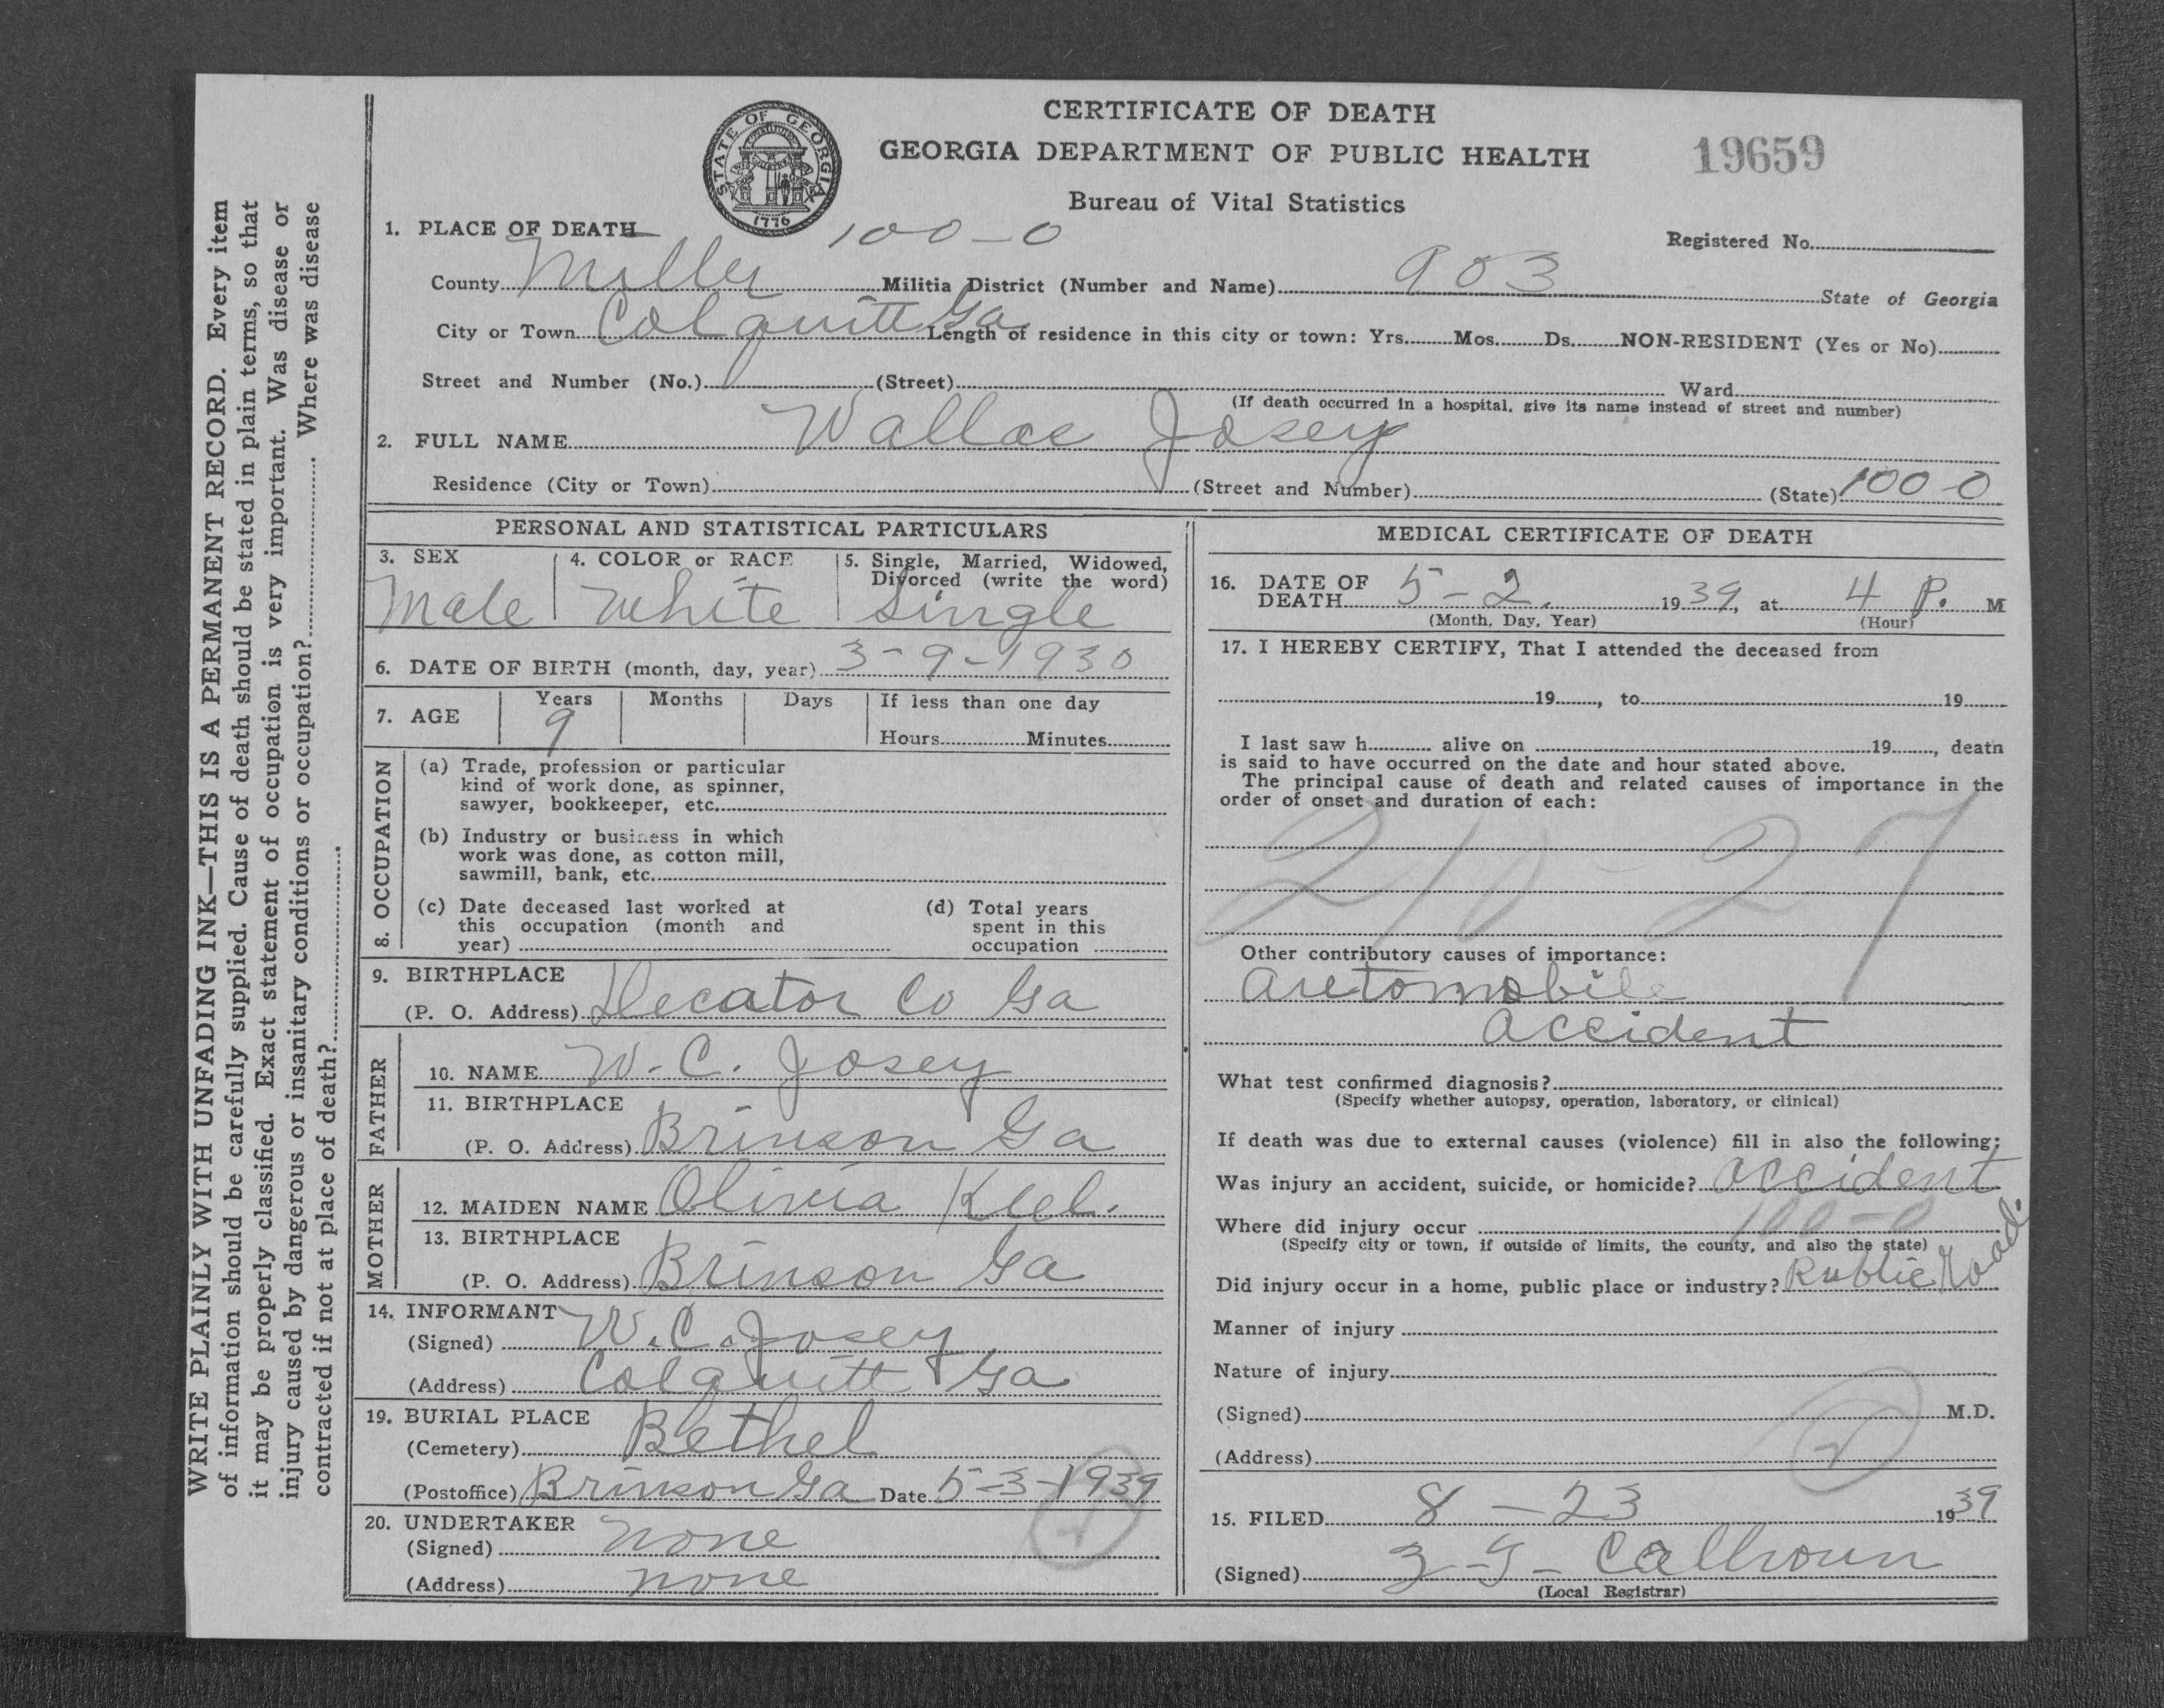 WRITE PLAINLY WITH UNFADING INK—THIS IS A PERMANENT RECORD. Every item
of information should be carefully supplied. Cause of death should be stated in plain terms, so that
it may be properly classified. Exact statement of occupation is very important. Was disease or
injury caused by dangerous or insanitary conditions or occupation?.......... Where was disease
contracted if not at place of death?..........
STATE OF GEORGIA
1776
CERTIFICATE OF DEATH
GEORGIA DEPARTMENT OF PUBLIC HEALTH
19659
Bureau of Vital Statistics
1. PLACE OF DEATH 100-0
Registered No.
County Miller Militia District (Number and Name) 903 State of Georgia
City or Town Colquitt Ga Length of residence in this city or town: Yrs. Mos. Ds. NON-RESIDENT (Yes or No)
Street and Number (No.) (Street) Ward
(If death occurred in a hospital, give its name instead of street and number)
2. FULL NAME Wallace Josey
Residence (City or Town) (Street and Number) (State) 100-0
PERSONAL AND STATISTICAL PARTICULARS
3. SEX 4. COLOR or RACE 5. Single, Married, Widowed,
Divorced (write the word)
Male White Single
6. DATE OF BIRTH (month, day, year) 3-9-1930
7. AGE Years Months Days If less than one day
9 Hours Minutes
8. OCCUPATION
(a) Trade, profession or particular
kind of work done, as spinner,
sawyer, bookkeeper, etc.
(b) Industry or business in which
work was done, as cotton mill,
sawmill, bank, etc.
(c) Date deceased last worked at
this occupation (month and
year)
(d) Total years
spent in this
occupation
9. BIRTHPLACE
(P. O. Address) Decator Co Ga
FATHER
10. NAME W. C. Josey
11. BIRTHPLACE
(P. O. Address) Brinson Ga
MOTHER
12. MAIDEN NAME Olivia
13. BIRTHPLACE
(P. O. Address) Brinson Ga
14. INFORMANT
(Signed) W. C. Josey
(Address) Colquitt Ga
19. BURIAL PLACE
(Cemetery) Bethel
(Postoffice) Brinson Ga Date 5-3-1939
20. UNDERTAKER
(Signed) none
(Address) none
MEDICAL CERTIFICATE OF DEATH
16. DATE OF
DEATH 5-2. 1939, at 4 P. M
(Month, Day, Year) (Hour)
17. I HEREBY CERTIFY, That I attended the deceased from
19, to 19
I last saw h alive on 19, death
is said to have occurred on the date and hour stated above.
The principal cause of death and related causes of importance in the
order of onset and duration of each:
210-27
Other contributory causes of importance:
automobile
accident
What test confirmed diagnosis?
(Specify whether autopsy, operation, laboratory, or clinical)
If death was due to external causes (violence) fill in also the following:
Was injury an accident, suicide, or homicide? accident
Where did injury occur 100-0
(Specify city or town, if outside of limits, the county, and also the state)
Did injury occur in a home, public place or industry? Public Road.
Manner of injury
Nature of injury
(Signed) M.D.
(Address)
15. FILED 8-23 1939
(Signed) Calhoun
(Local Registrar)